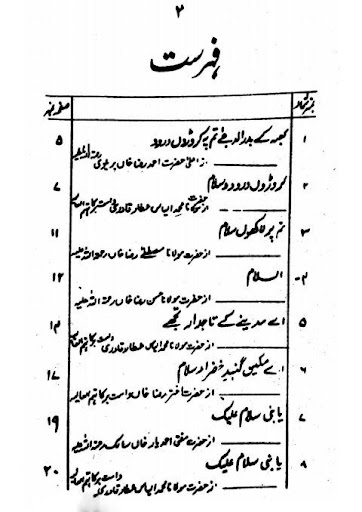 ۲
فہرست
نمبر شمار صفحہ نمبر
۱ کعبہ کے بدر الدجٰے تم پہ کروڑوں درود ۵
از اعلیٰ حضرت احمد رضا خاں بریلوی رحمۃ اللہ علیہ
۲ کروڑوں درود و سلام ۷
از حضرت محمد الیاس عطار قادری دامت برکاتہم العالیہ
۳ تم پر لاکھوں سلام ۱۱
از حضرت مولانا رضا خاں رحمۃ اللہ علیہ
۴ السلام ۱۲
از حضرت مولانا حسن رضا خاں رحمۃ اللہ علیہ
۵ اے مدینے کے تاجدار تجھے ۱۴
از حضرت مولانا محمد الیاس عطار قادری دامت برکاتہم العالیہ
۶ اے مکین گنبد خضرا سلام ۱۷
از حضرت اختر رضا خاں دامت برکاتہم العالیہ
۷ یا نبی سلام علیک ۱۹
از حضرت مفتی احمد یار خاں سالک رحمۃ اللہ علیہ
۸ یا نبی سلام علیک ۲۰
از حضرت مولانا محمد الیاس عطار قادری دامت برکاتہم العالیہ